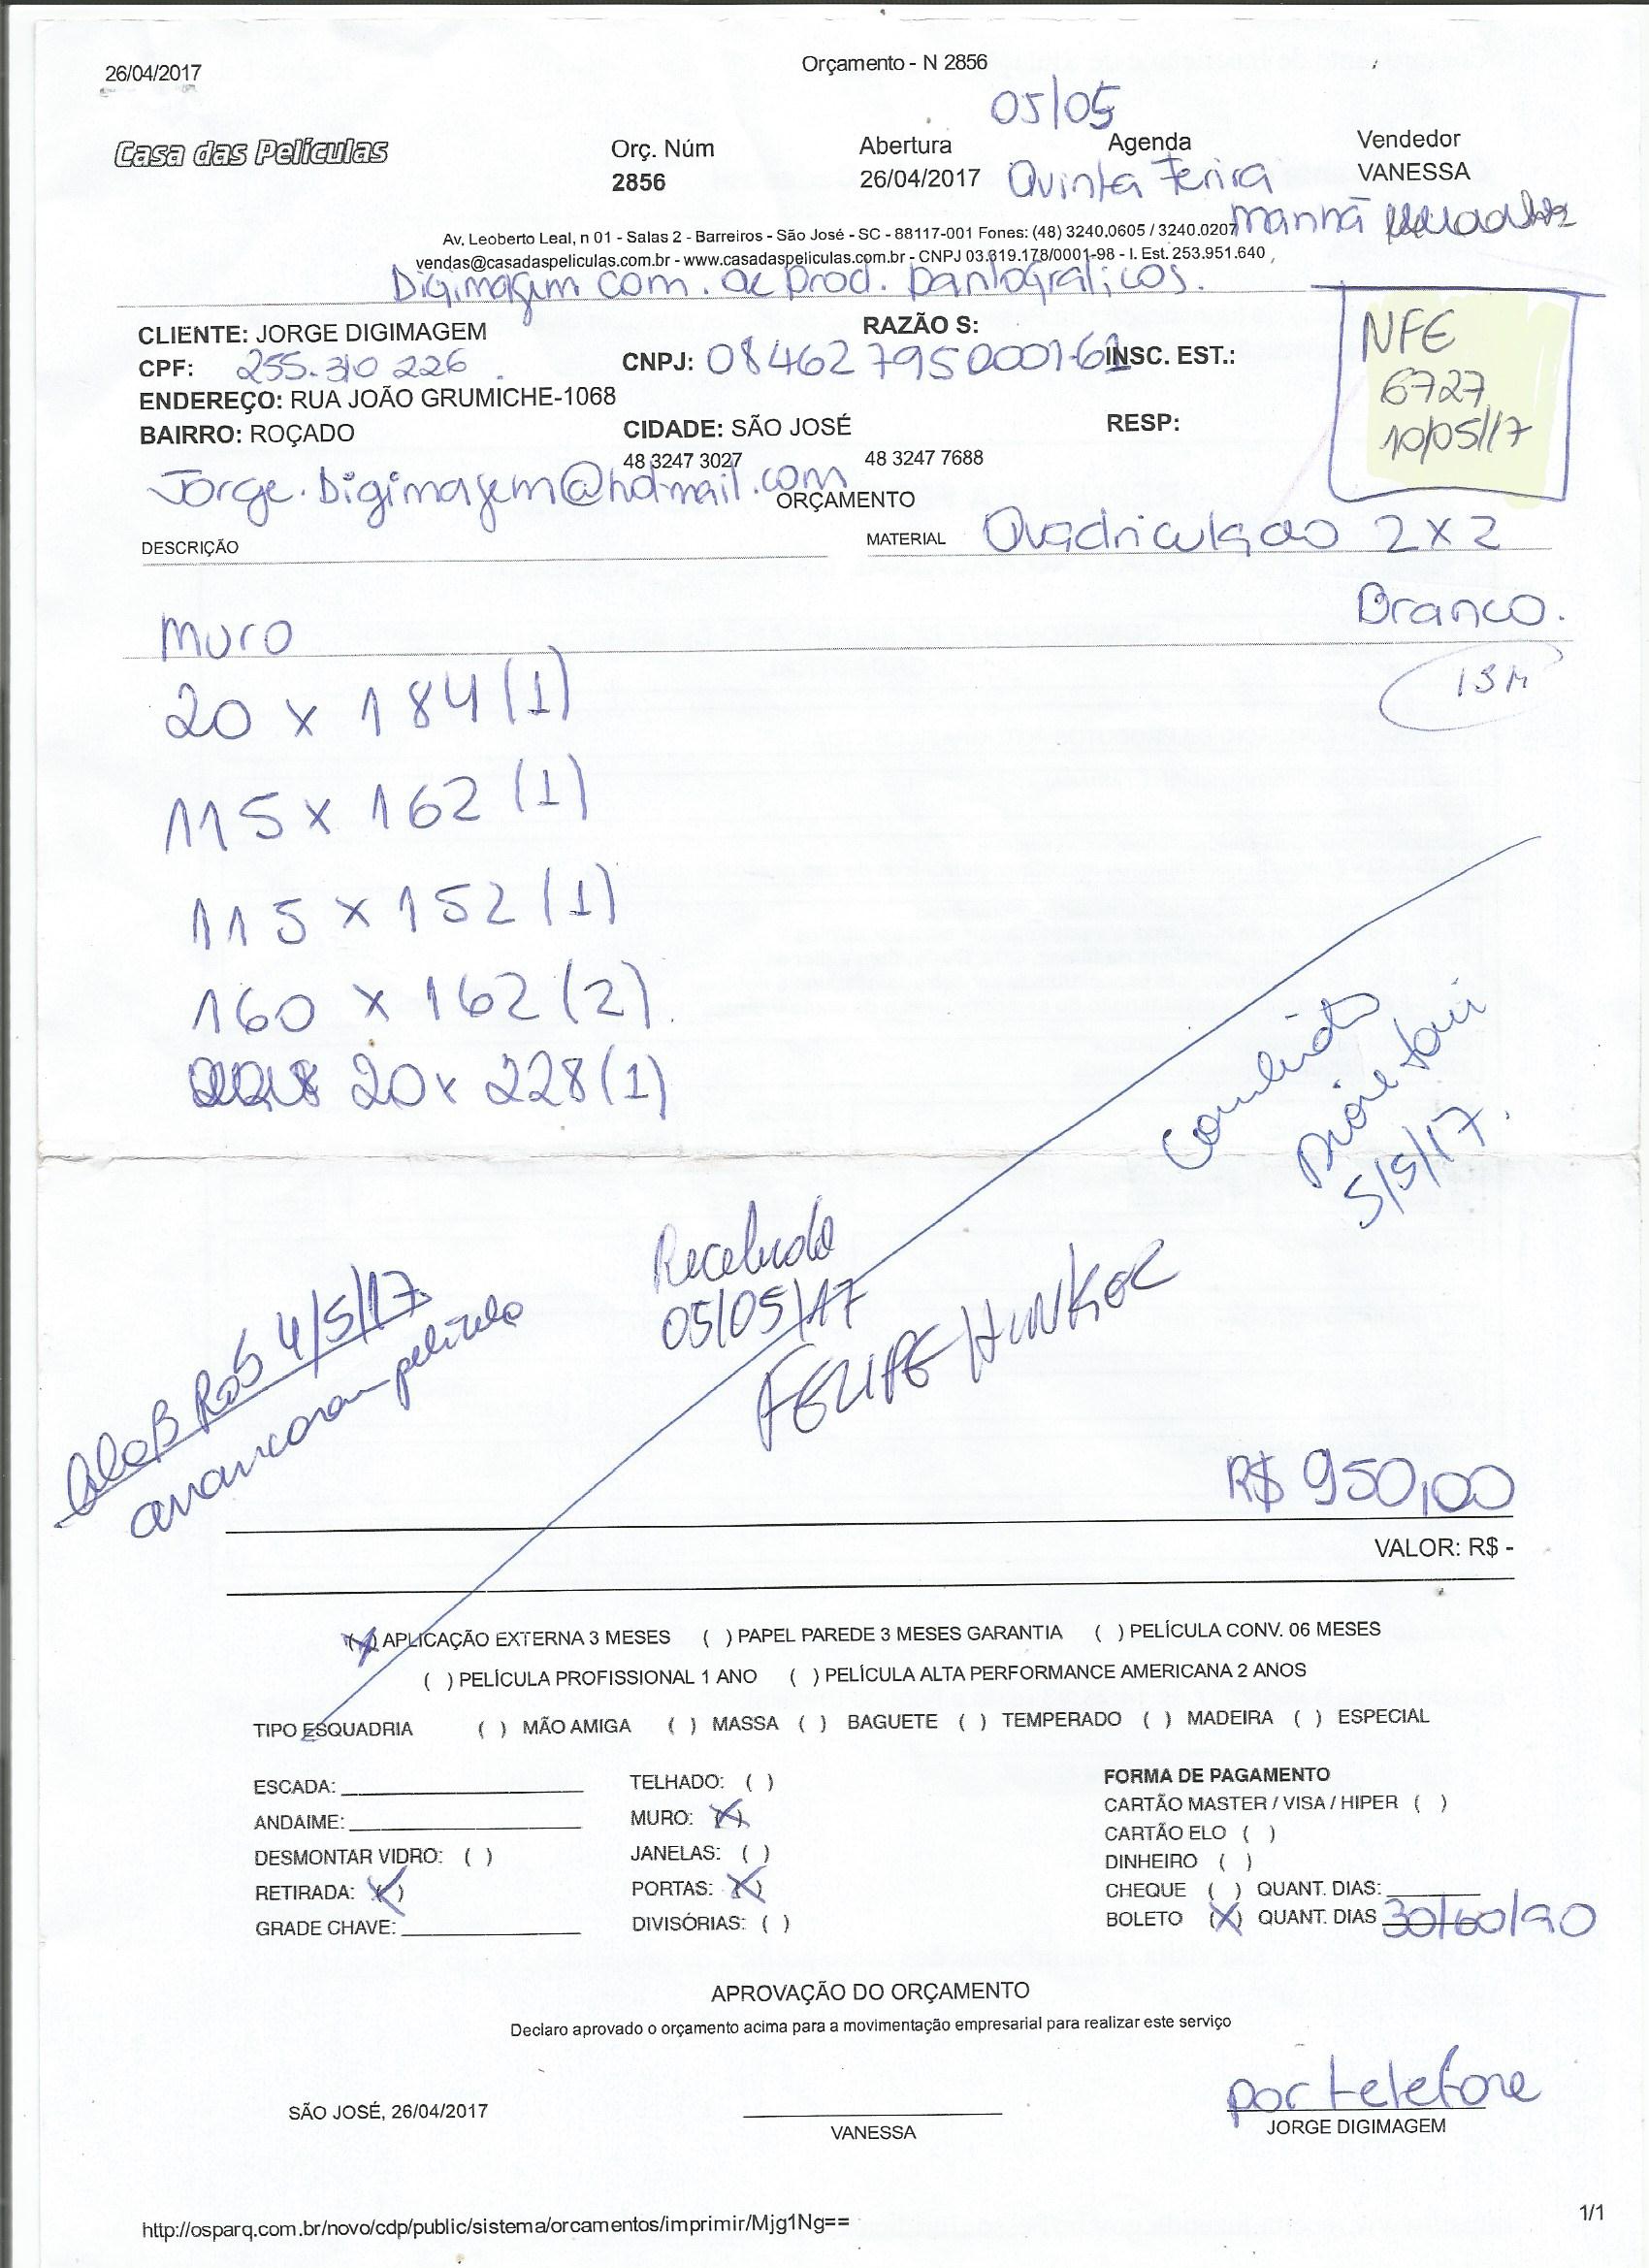 26/04/2017 Orçamento - N 2856
05/05
Casa das Películas Orç. Núm Abertura Agenda Vendedor
2856 26/04/2017 Quinta Feira VANESSA
manhã
Av. Leoberto Leal, n 01 - Salas 2 - Barreiros - São José - SC - 88117-001 Fones: (48) 3240.0605 / 3240.0207
vendas@casadaspeliculas.com.br - www.casadaspeliculas.com.br - CNPJ 03.319.178/0001-98 - I. Est. 253.951.640
Digimagem com. de prod. pantográficos.
CLIENTE: JORGE DIGIMAGEM RAZÃO S:
CPF: 255.310 226 CNPJ: 084627950001-61 INSC. EST.:
ENDEREÇO: RUA JOÃO GRUMICHE-1068
BAIRRO: ROÇADO CIDADE: SÃO JOSÉ RESP:
48 3247 3027 48 3247 7688
NFE
6727
10/05/17
Jorge.Digimagem@hotmail.com
ORÇAMENTO
DESCRIÇÃO MATERIAL Quadriculado 2x2
Branco.
muro
20 x 184 (1)
115 x 162 (1)
115 x 152 (1)
160 x 162 (2)
20 x 228 (1)
5/5/17.
Recebido
05/05/17
FELIPE HUNKER
4/5/17
arrancaram película
R$ 950,00
VALOR: R$ -
(X) APLICAÇÃO EXTERNA 3 MESES ( ) PAPEL PAREDE 3 MESES GARANTIA ( ) PELÍCULA CONV. 06 MESES
( ) PELÍCULA PROFISSIONAL 1 ANO ( ) PELÍCULA ALTA PERFORMANCE AMERICANA 2 ANOS
TIPO ESQUADRIA ( ) MÃO AMIGA ( ) MASSA ( ) BAGUETE ( ) TEMPERADO ( ) MADEIRA ( ) ESPECIAL
ESCADA: TELHADO: ( ) FORMA DE PAGAMENTO
ANDAIME: MURO: (X) CARTÃO MASTER / VISA / HIPER ( )
DESMONTAR VIDRO: ( ) JANELAS: ( ) CARTÃO ELO ( )
DINHEIRO ( )
RETIRADA: (X) PORTAS: (X) CHEQUE ( ) QUANT. DIAS:
GRADE CHAVE: DIVISÓRIAS: ( ) BOLETO (X) QUANT. DIAS 30/60/90
APROVAÇÃO DO ORÇAMENTO
Declaro aprovado o orçamento acima para a movimentação empresarial para realizar este serviço
por telefone
SÃO JOSÉ, 26/04/2017 VANESSA JORGE DIGIMAGEM
http://osparq.com.br/novo/cdp/public/sistema/orcamentos/imprimir/Mjg1Ng== 1/1